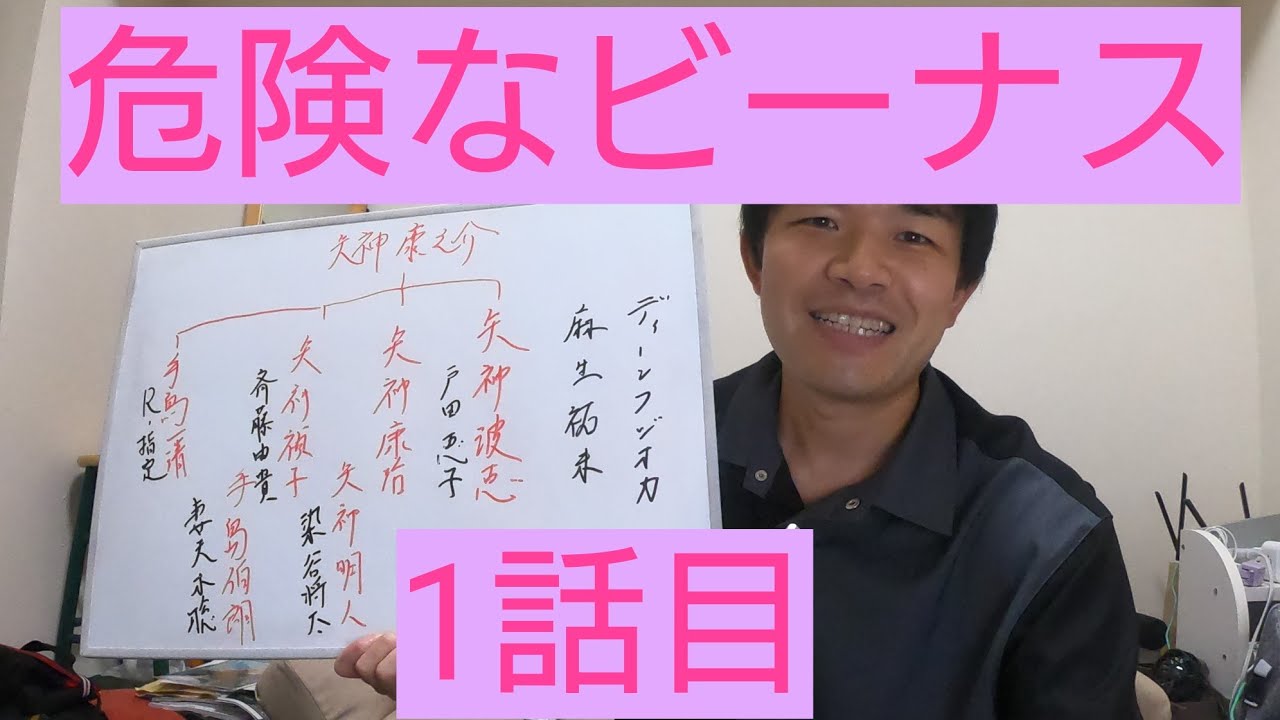 危険なビーナス
矢神康之介
ディーンフジオカ
麻生祐未
矢神波恵
戸田恵子
矢神康治
矢神禎子
斉藤由貴
矢神明人
染谷将太
手島一清
R-指定
手島伯朗
妻夫木聡
1話目